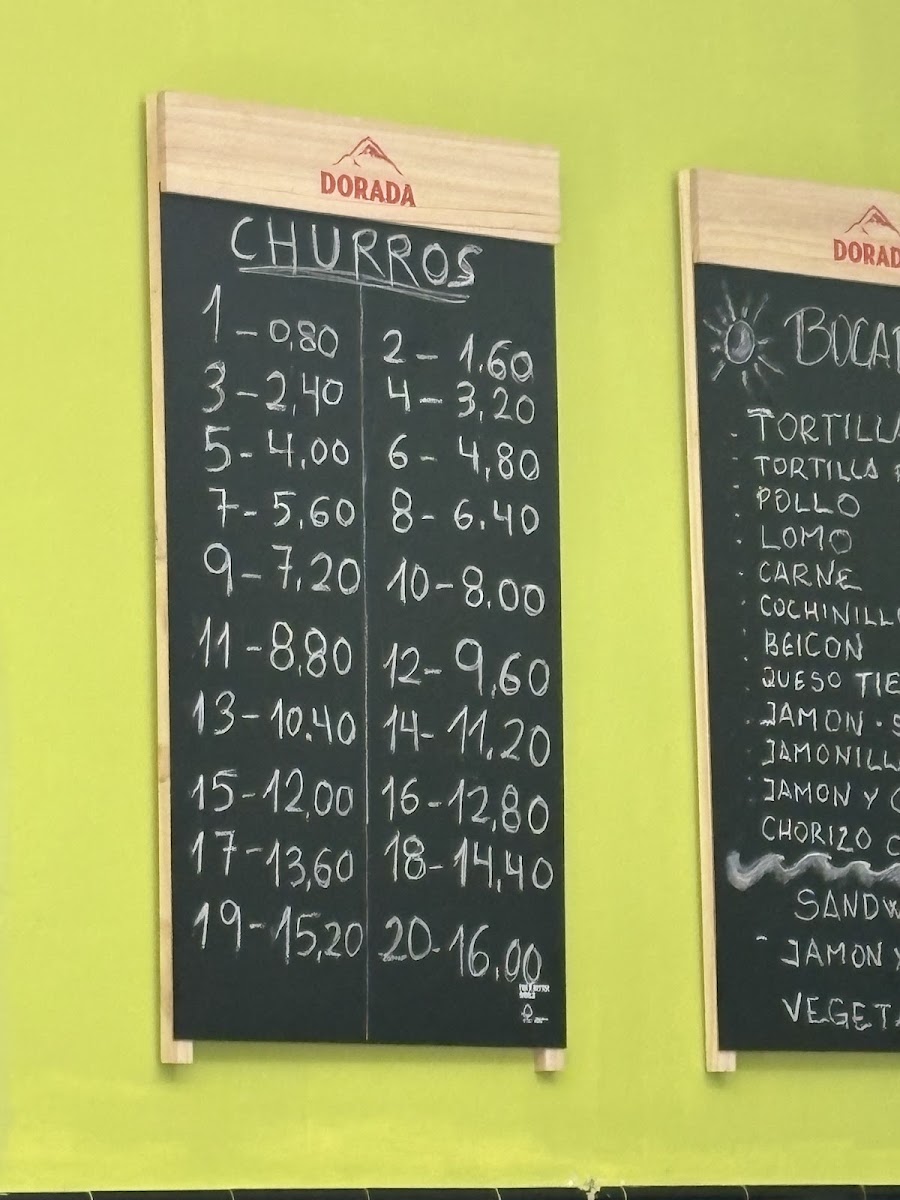 DORADA
CHURROS
1 - 0,80
2 - 1.60
3 - 2,40
4 - 3,20
5 - 4,00
6 - 4,80
7 - 5,60
8 - 6.40
9 - 7,20
10 - 8.00
11 - 8,80
12 - 9,60
13 - 10.40
14 - 11.20
15 - 12,00
16 - 12,80
17 - 13,60
18 - 14,40
19 - 15,20
20 - 16,00
DORAD
BOCA
- TORTILLA
- TORTILLA
- POLLO
- LOMO
- CARNE
- COCHINILLO
- BEICON
- QUESO TIE
- JAMON - S
- JAMONILL
- JAMON Y
CHORIZO C
SANDW
- JAMON Y
VEGETA